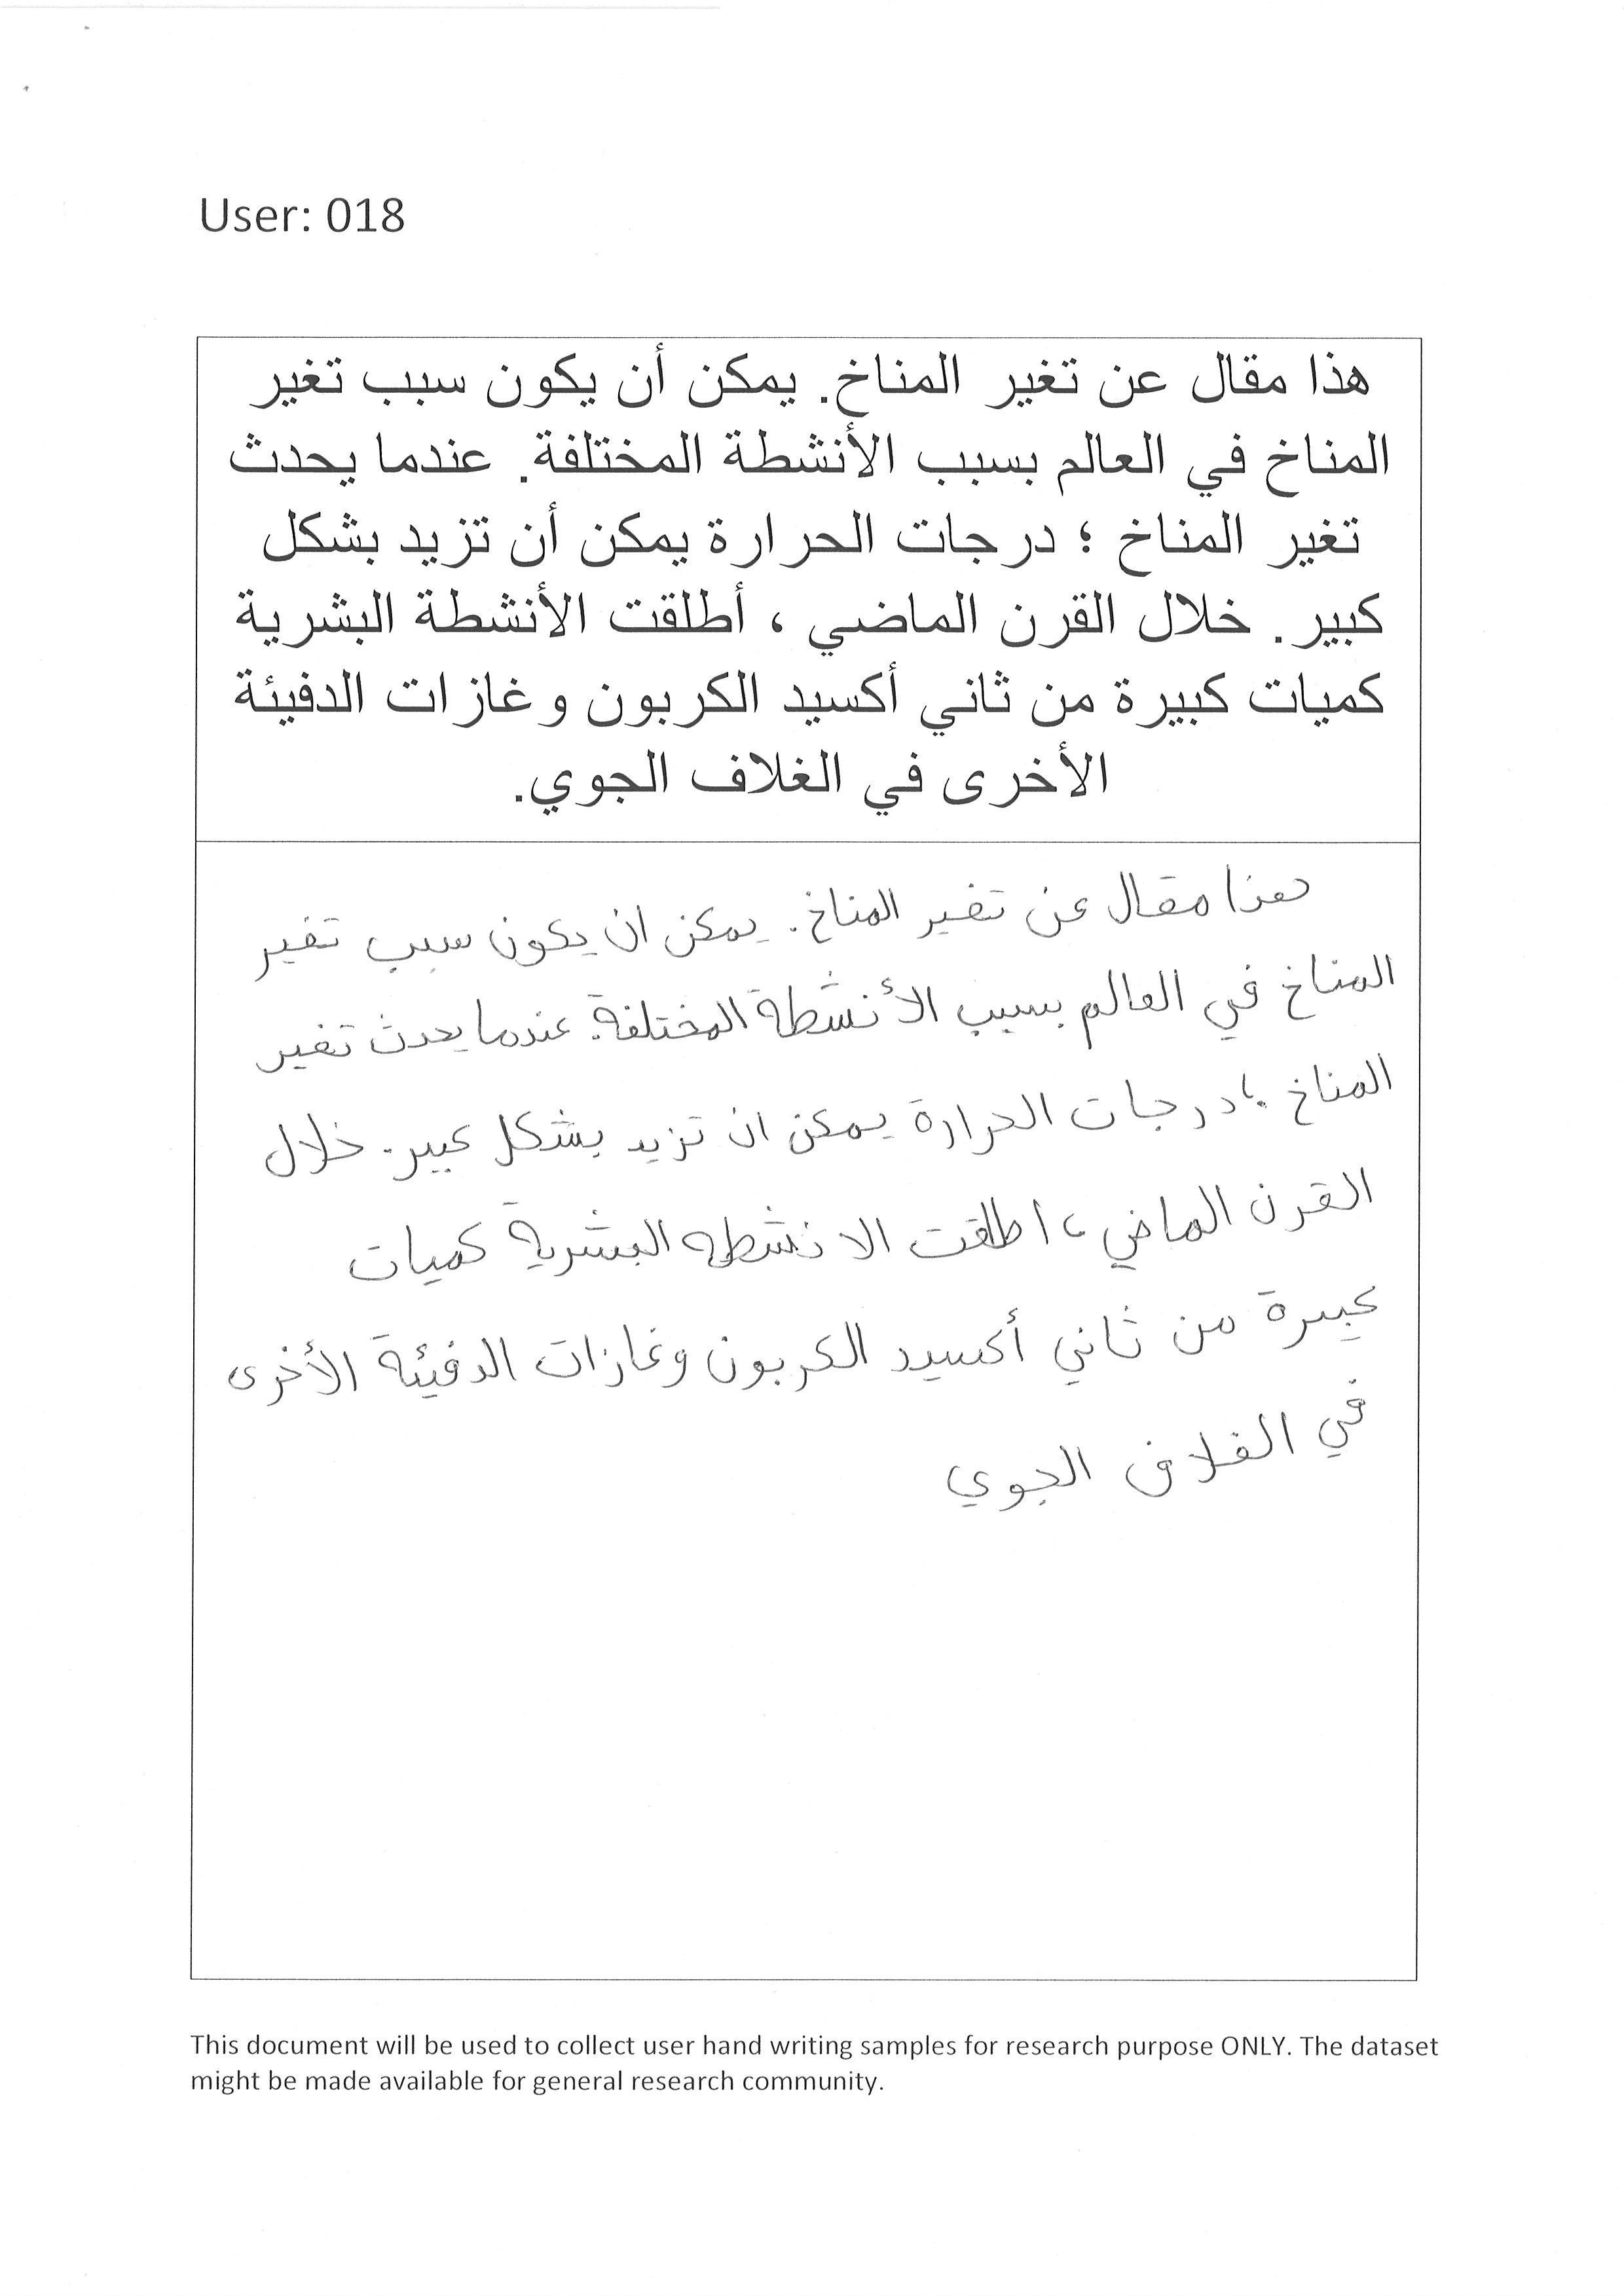 User: 018
هذا مقال عن تغير المناخ. يمكن أن يكون سبب تغير
المناخ في العالم بسبب الأنشطة المختلفة. عندما يحدث
تغير المناخ ؛ درجات الحرارة يمكن أن تزيد بشكل
كبير. خلال القرن الماضي ، أطلقت الأنشطة البشرية
كميات كبيرة من ثاني أكسيد الكربون وغازات الدفيئة
الأخرى في الغلاف الجوي.
هذا مقال عن تغير المناخ. يمكن ان يكون سبب تغير
المناخ في العالم بسبب الأنشطة المختلفة. عندما يحدث تغير
المناخ ؛ درجات الحرارة يمكن ان تزيد بشكل كبير. خلال
القرن الماضي ، اطلقت الانشطه البشرية كميات
كبيرة من ثاني أكسيد الكربون وغازات الدفيئة الأخرى
في الغلاف الجوي
This document will be used to collect user hand writing samples for research purpose ONLY. The dataset
might be made available for general research community.